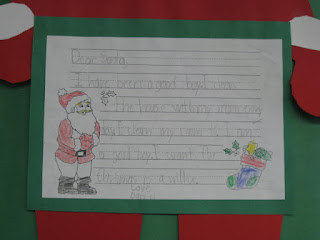 Dear Santa,
I have been a good boy I clean
the house with my mom and
I clean my room is I am
a good boy I want for
christmas is a
Love